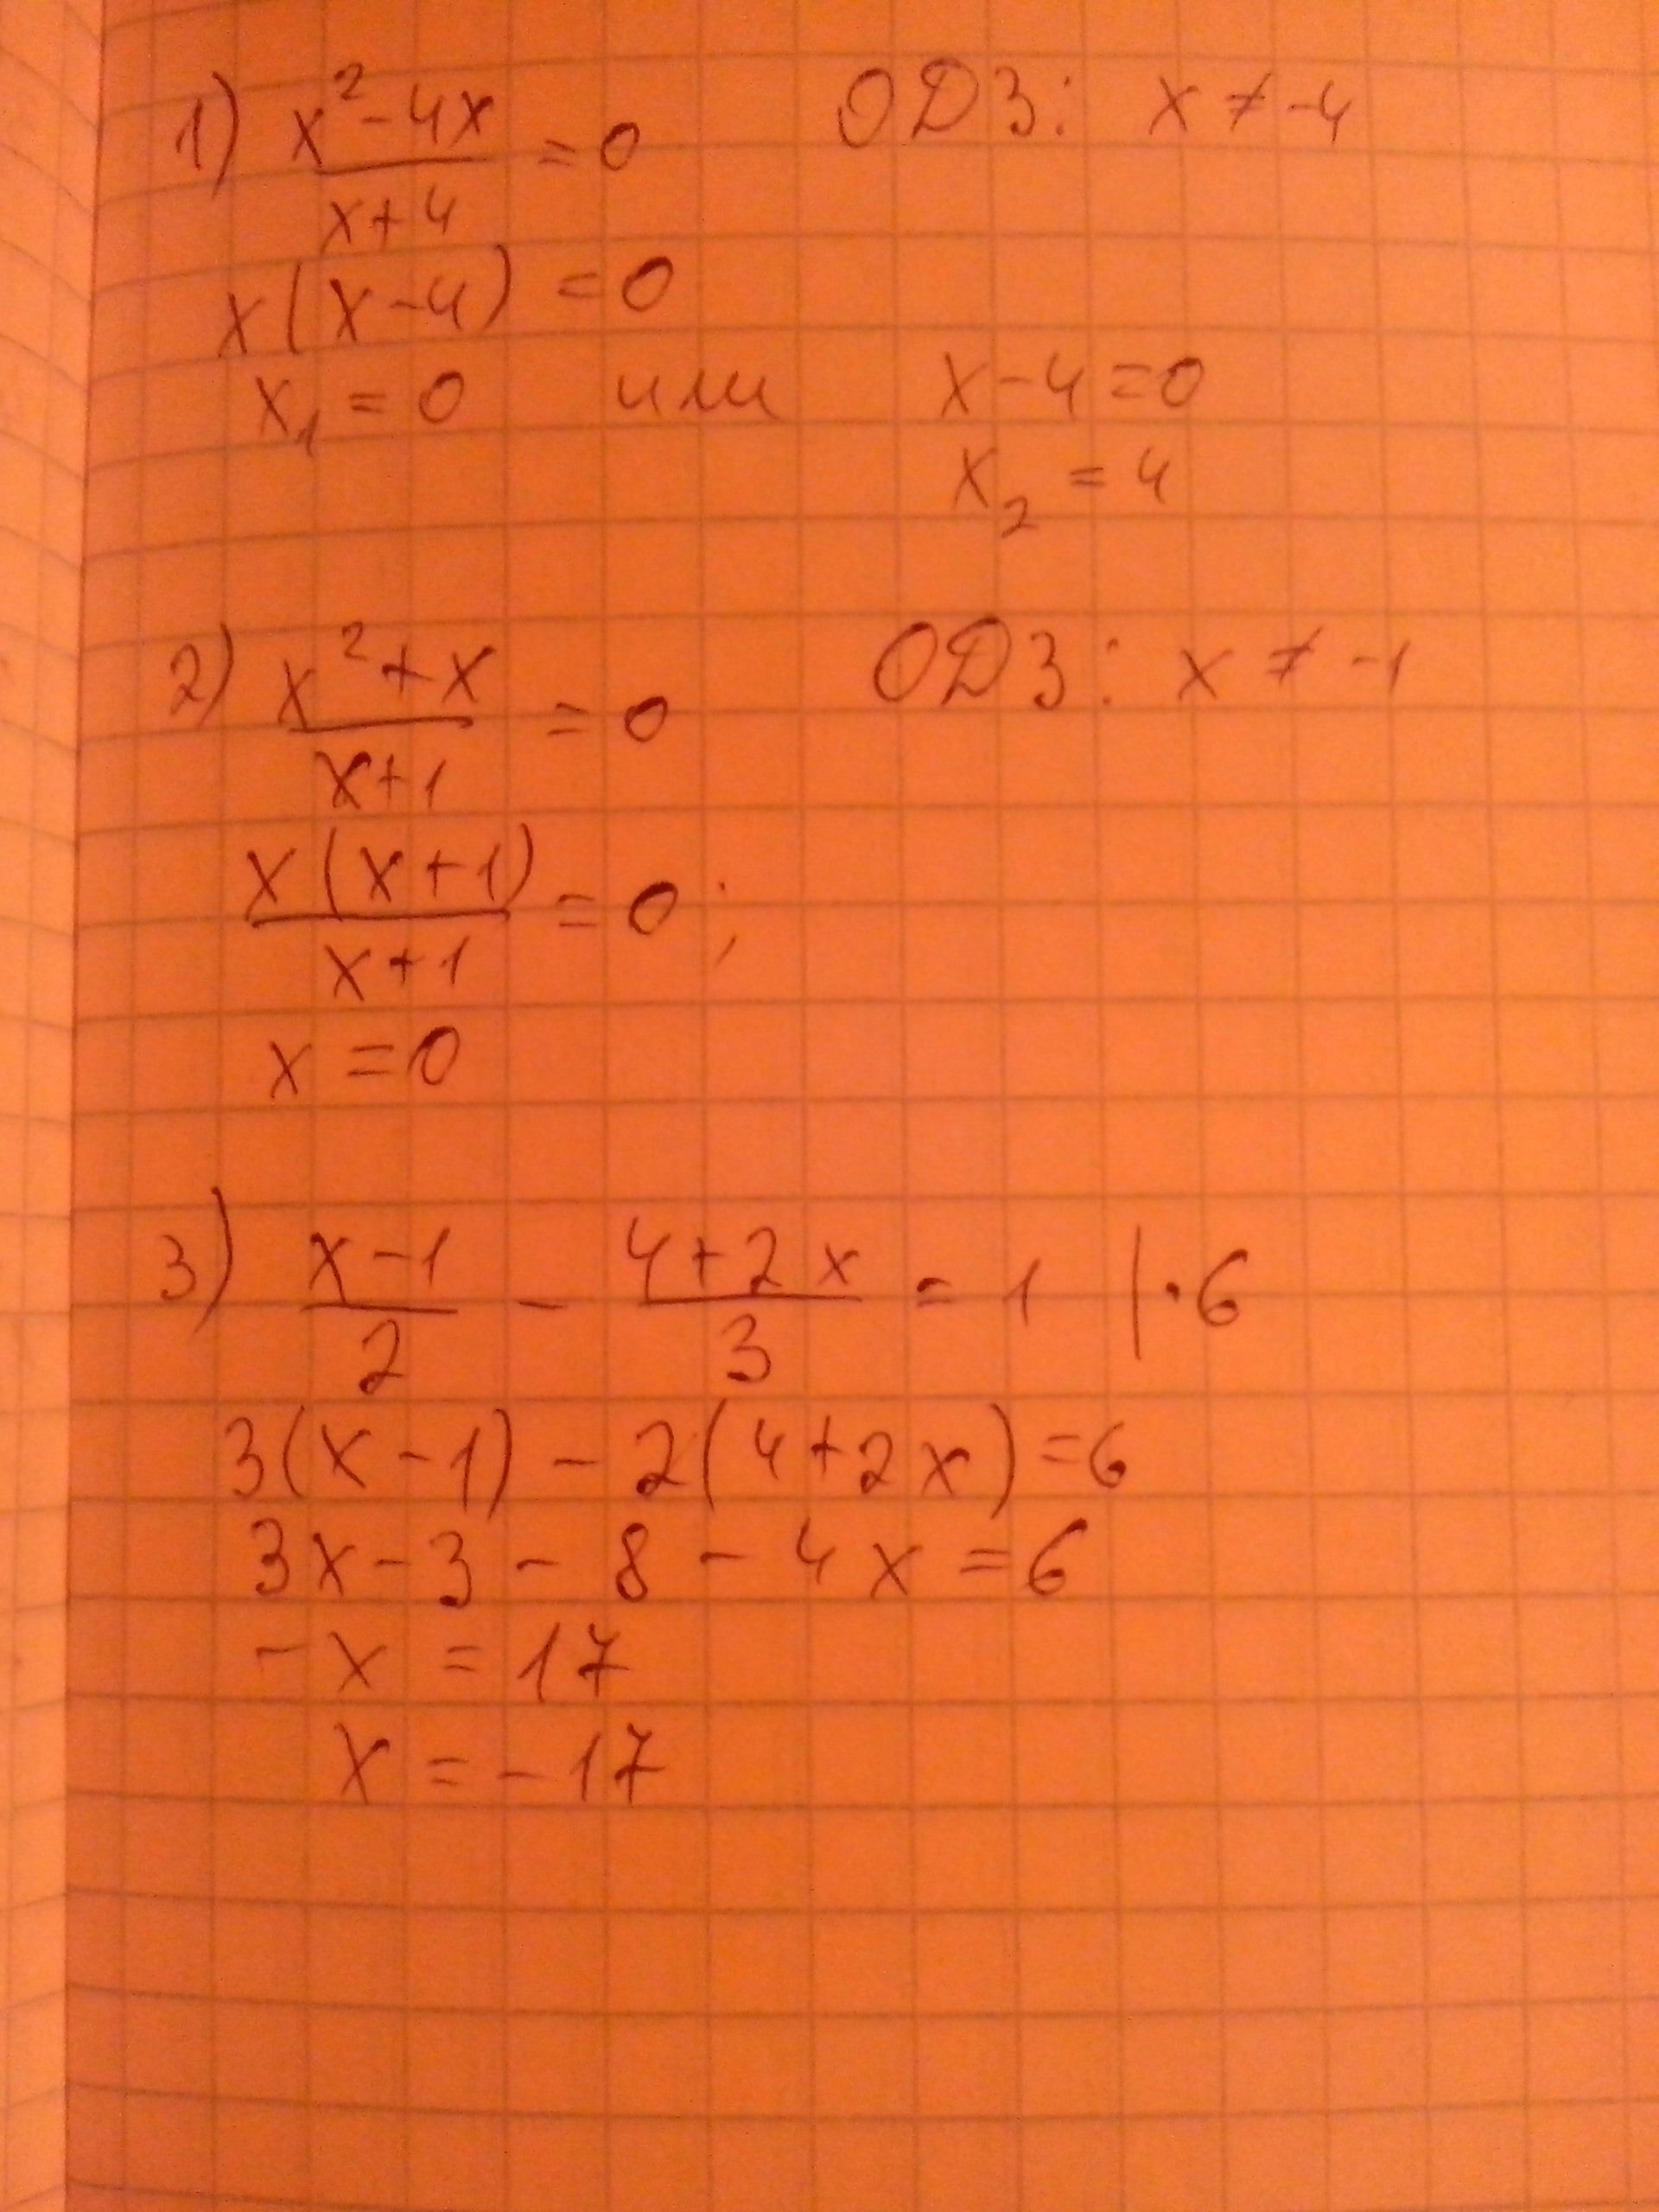 1) (x²-4x)/(x+4) = 0 ОДЗ: x ≠ -4
x(x-4) = 0
x₁ = 0 или x-4=0
x₂ = 4
2) (x²+x)/(x+1) = 0 ОДЗ: x ≠ -1
(x(x+1))/(x+1) = 0;
x = 0
3) (x-1)/2 - (4+2x)/3 = 1 |·6
3(x-1) - 2(4+2x) = 6
3x-3-8-4x=6
-x = 17
x = -17